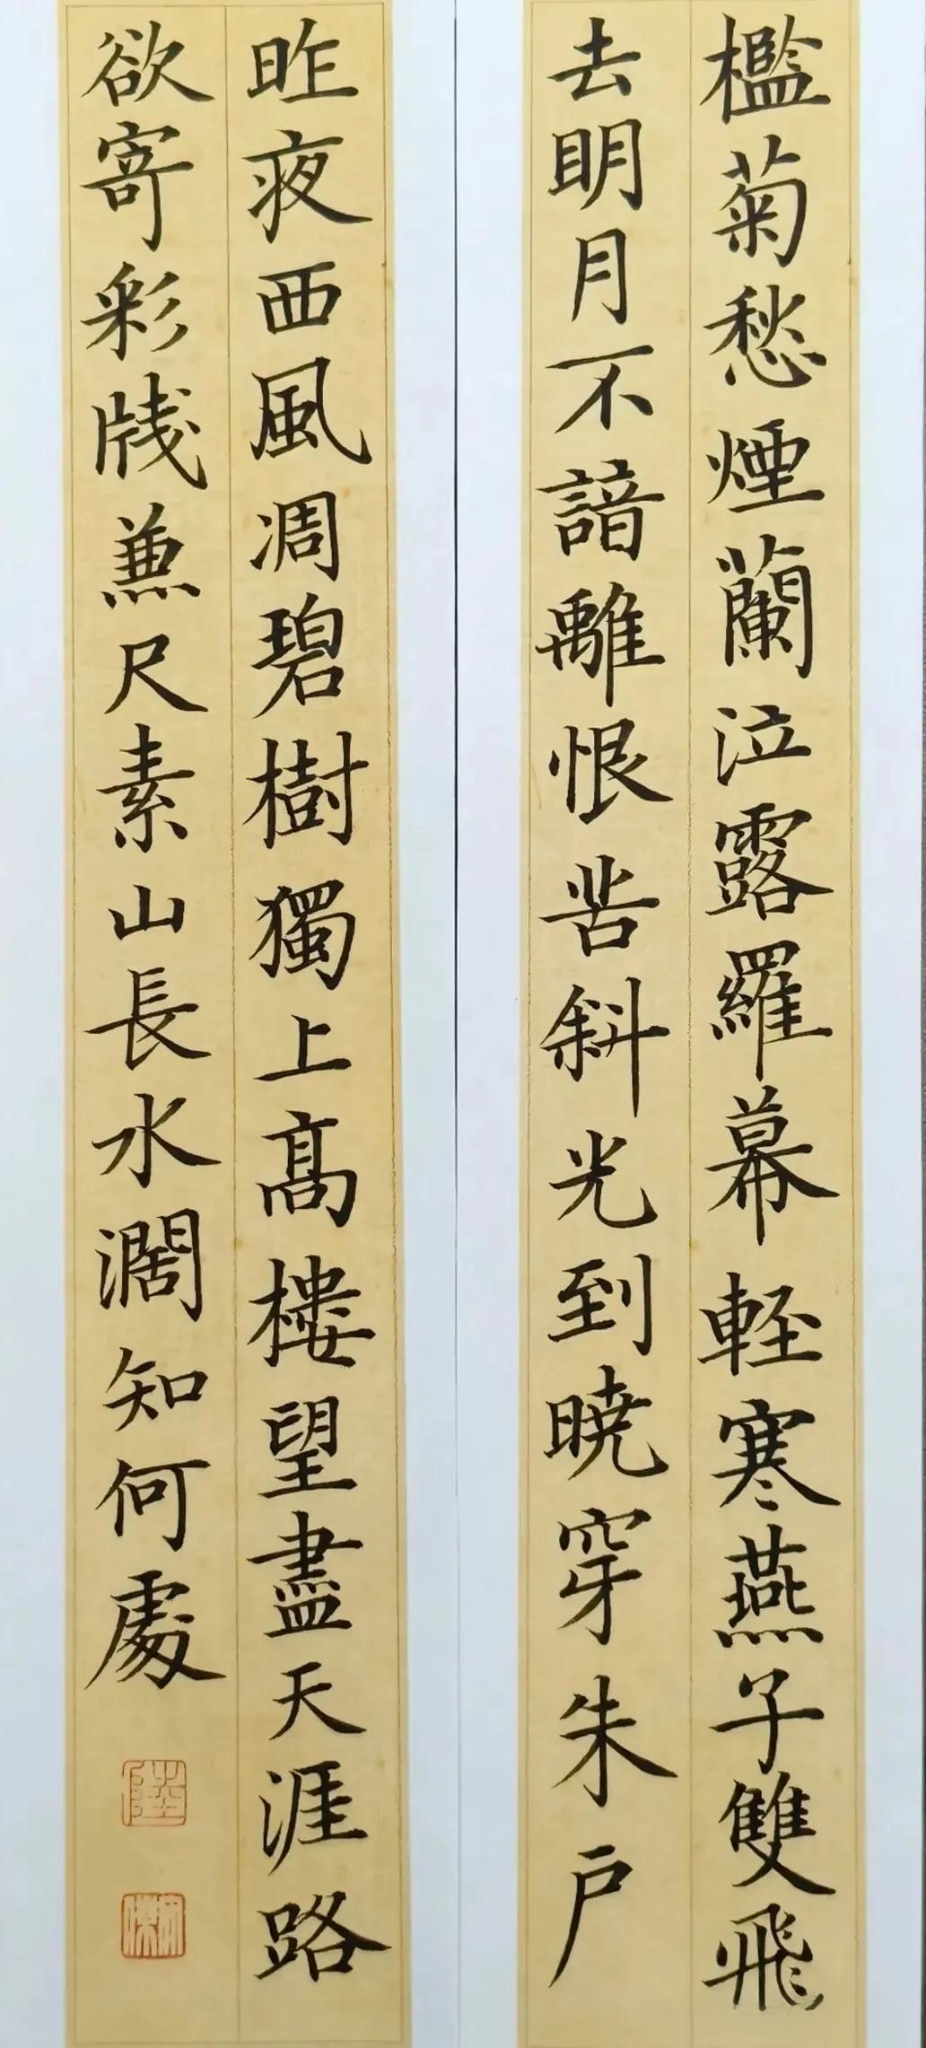 檻菊愁煙蘭泣露羅幕輕寒燕子雙飛
去明月不諳離恨苦斜光到曉穿朱戶
昨夜西風凋碧樹獨上高樓望盡天涯路
欲寄彩牋兼尺素山長水濶知何處